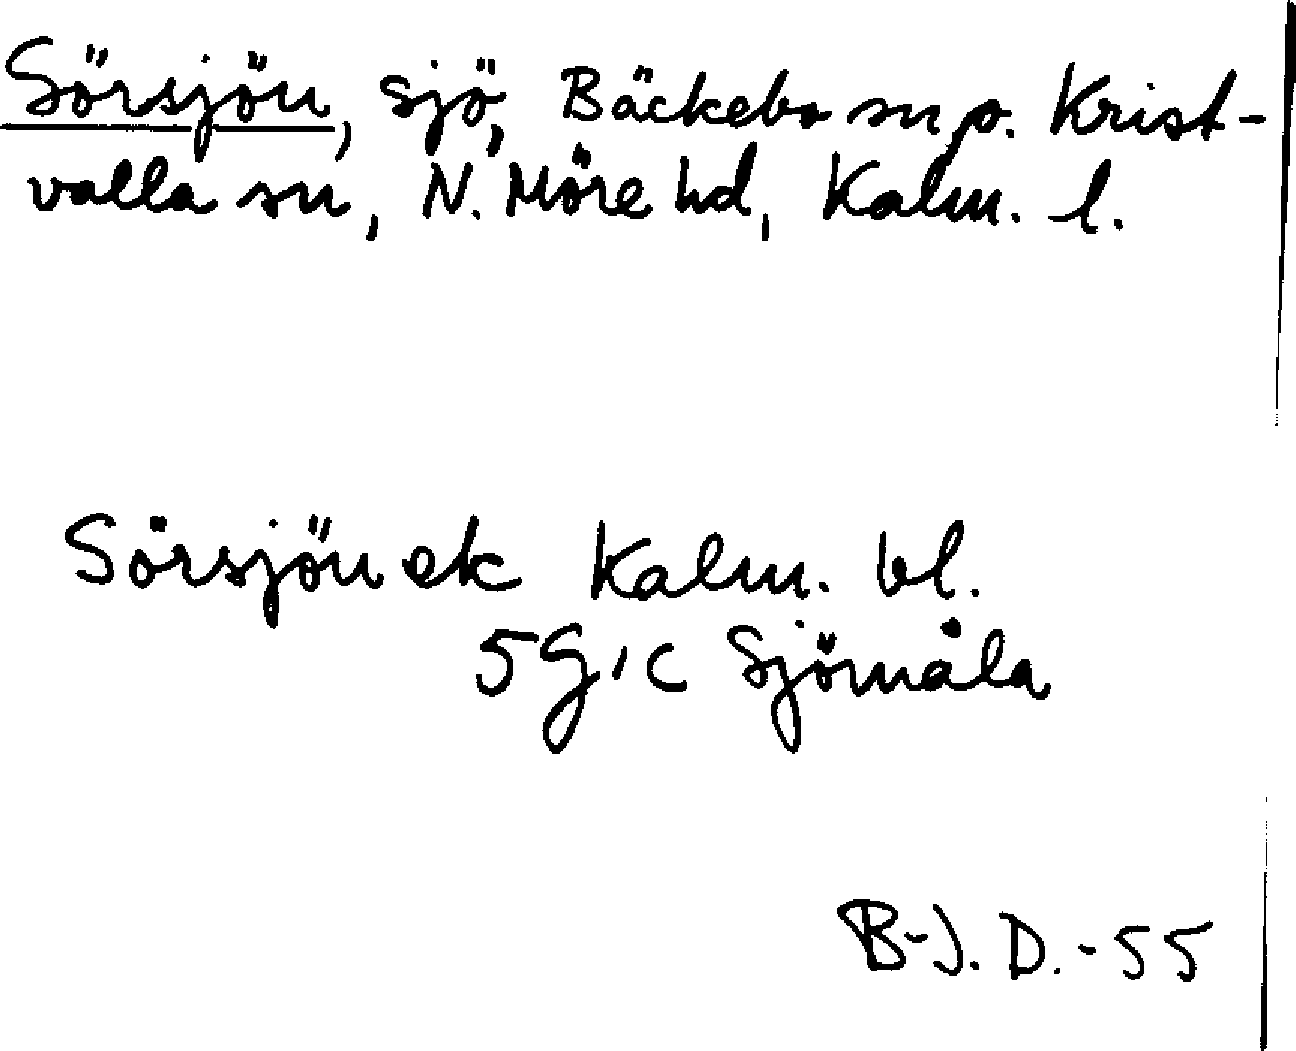 Sörsjön, sjö, Bäckebo sn o. Krist-
valla sn, N. Möre hd, Kalm. l.
Sörsjön ek Kalm. bl.
5G'c Sjömåla
B-J. D. -55